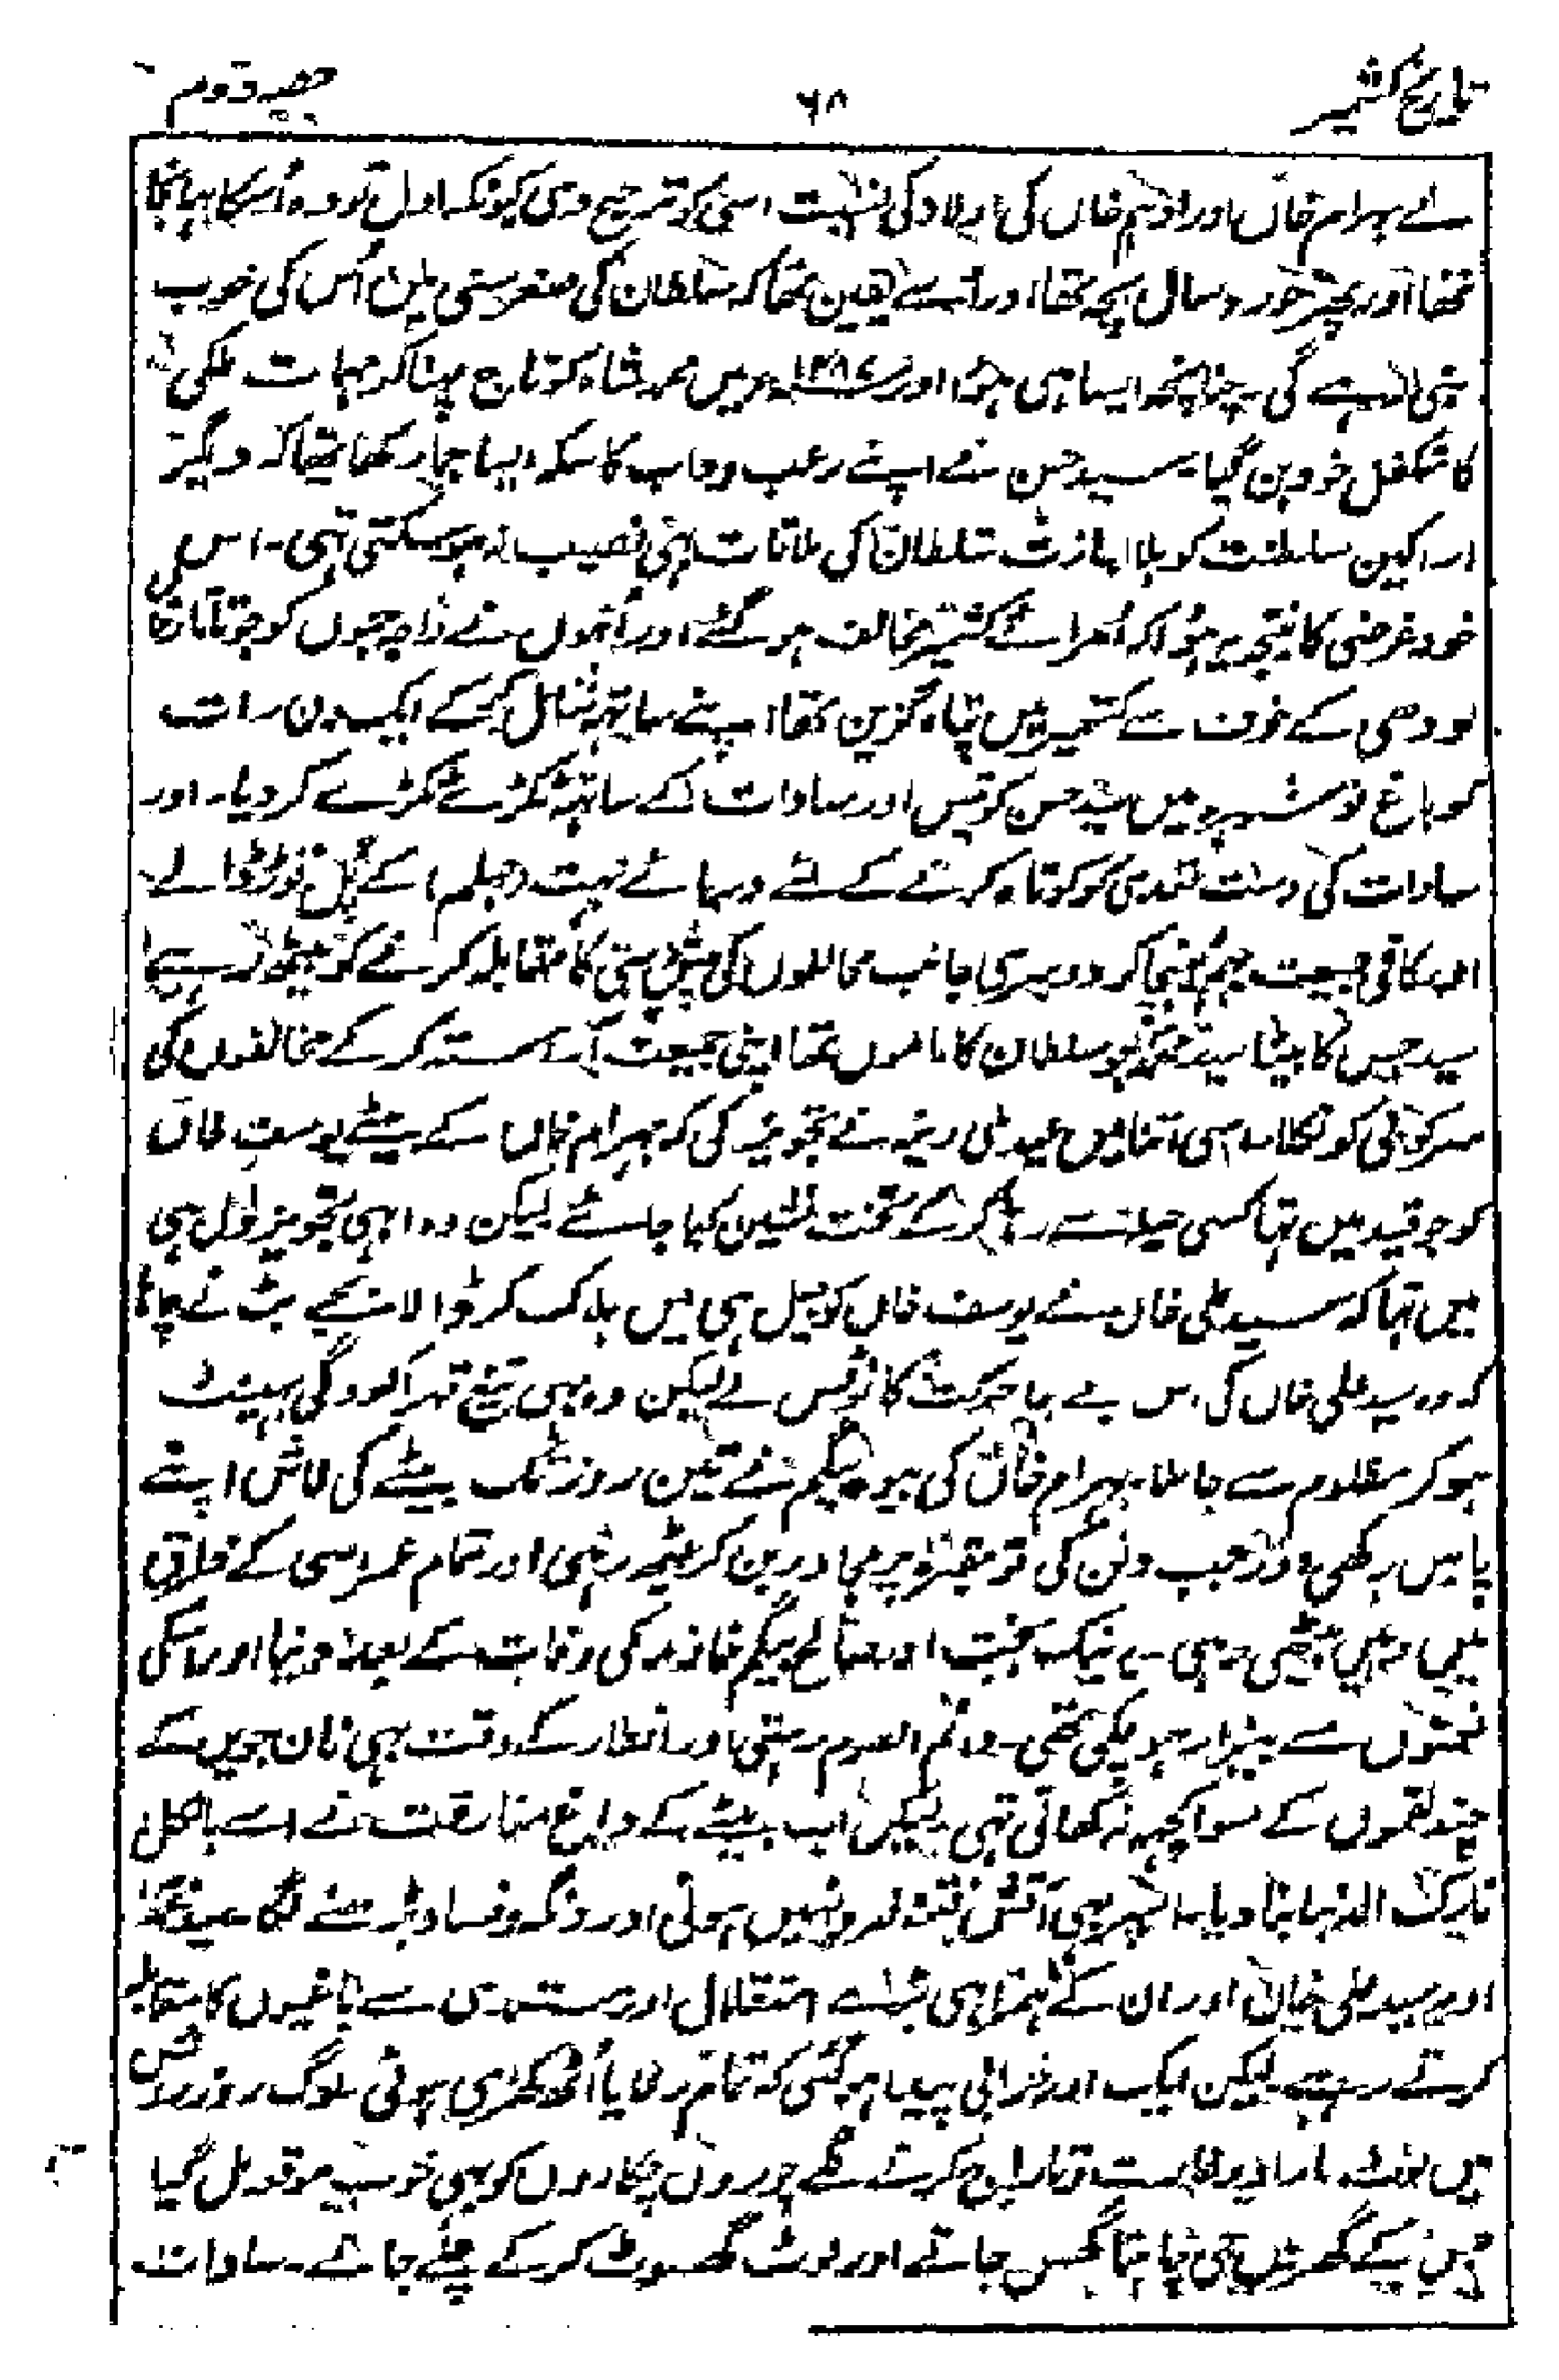 تاریخ کشمیر
۶۸
حصہ دوم
نے بہرام خاں اور ادہم خاں کی اولاد کی نسبت اسی کو ترجیح دی کیونکہ اول تو وہ اُسکا بہانجا
تھا اور پھر خورد سال بچہ تھا اور اسے یقین تھا کہ سلطان کی صغر سنی میں اُس کی خوب
بنی رہے گی۔ چنانچہ ایسا ہی ہوا اور میں محمد شاہ کو تاج پہنا کر مہمات ملکی
کا متکفل خود بن گیا۔ سید حسن نے اپنے رعب وداب کا سکہ ایسا جما رکھا تھا کہ دیگر
اراکین سلطنت کو بلا اجازت سلطان کی ملاقات بھی نصیب نہ ہوسکتی تھی۔ اس
خود غرضی کا نتیجہ یہ ہوا کہ اُمرائے کشمیر مخالف ہو گئے اور اُنہوں نے راجہ جموں کو جو تاتار خاں
لودھی کے خوف سے کشمیر میں پناہ گزین تھا اپنے ساتھ شامل کرکے ایک دن رات
کو باغ نوشہرہ میں سید حسن کو تیس اور سادات کے ساتھ ٹکڑے ٹکڑے کر دیا۔ اور
سادات کی دست تعدی کو کوتاہ کرنے کے لئے دریائے بہت (جہلم) کے پُل توڑ ڈالے
اور کافی جمعیت بہم پہنچا کر دوسری جانب مخالفوں کی پیش دستی کا مقابلہ کرنے کو بیٹھ رہے
سید حسن کا بیٹا سید محمد جو سلطان کا ماموں تھا اپنی جمعیت آراستہ کر کے مخالفوں کی
سرکوبی کو نکلا۔ اسی اثنا میں عیدی رینہ نے تجویز کی کہ بہرام خاں کے بیٹے یوسف خاں
کو جو قید میں تہا کسی حیلہ سے رہا کر کے تخت نشین کیا جائے لیکن وہ ابہی تجویز دل ہی
میں تہا کہ سید علی خاں نے یوسف خاں کو جیل ہی میں ہلاک کر ڈالا بٹ نے چاہا
کہ وہ سید علی خاں کی اس بے جا حرکت کا نوٹس لے لیکن وہ بہی تیغ قہر آلود کی بہینٹ
ہو کر مظلوم سے جا ملا۔ بہرام خاں کی بیوہ بیگم نے تین روز تک بیٹے کی لاش اپنے
پاس رکھی اور جب دفن کی تو مقبرہ پر مجاور بن کر بیٹھ رہی اور تمام عمر اسی کے فراق
میں وہیں بیٹھی رہی۔ یہ نیک بخت اور صالح بیگم خاوند کی وفات کے بعد دنیا اور اسکی
نعمتوں سے بیزار ہو چکی تھی۔ دائم الصوم رہتی اور افطار کے وقت بہی نان جویں کے
چند لقموں کے سوا کچھ نہ کھاتی تہی لیکن اب بیٹے کے داغ مفارقت نے اسے بالکل
تارک الدنیا بنا دیا۔ پہر بہی آتش فتنہ فرو نہیں ہوئی اور دنگہ و فساد بڑہنے لگا سید محمد
اور سید علی خاں اور ان کے ہمراہی بڑے استقلال اور مستعدی سے باغیوں کا مقابلہ
کرتے رہے لیکن ایک اور خرابی پیدا ہو گئی کہ تمام رعایا اُٹھ کھڑی ہوئی لوگ روز روشن
میں لوٹ مار اور غارت و تاراج کرنے لگے چوروں چکاروں کو بہی خوب موقعہ مل گیا
جس کے گھر میں جی چاہتا گھس جاتے اور لوٹ گھسوٹ کر کے چلے جاتے۔ سادات